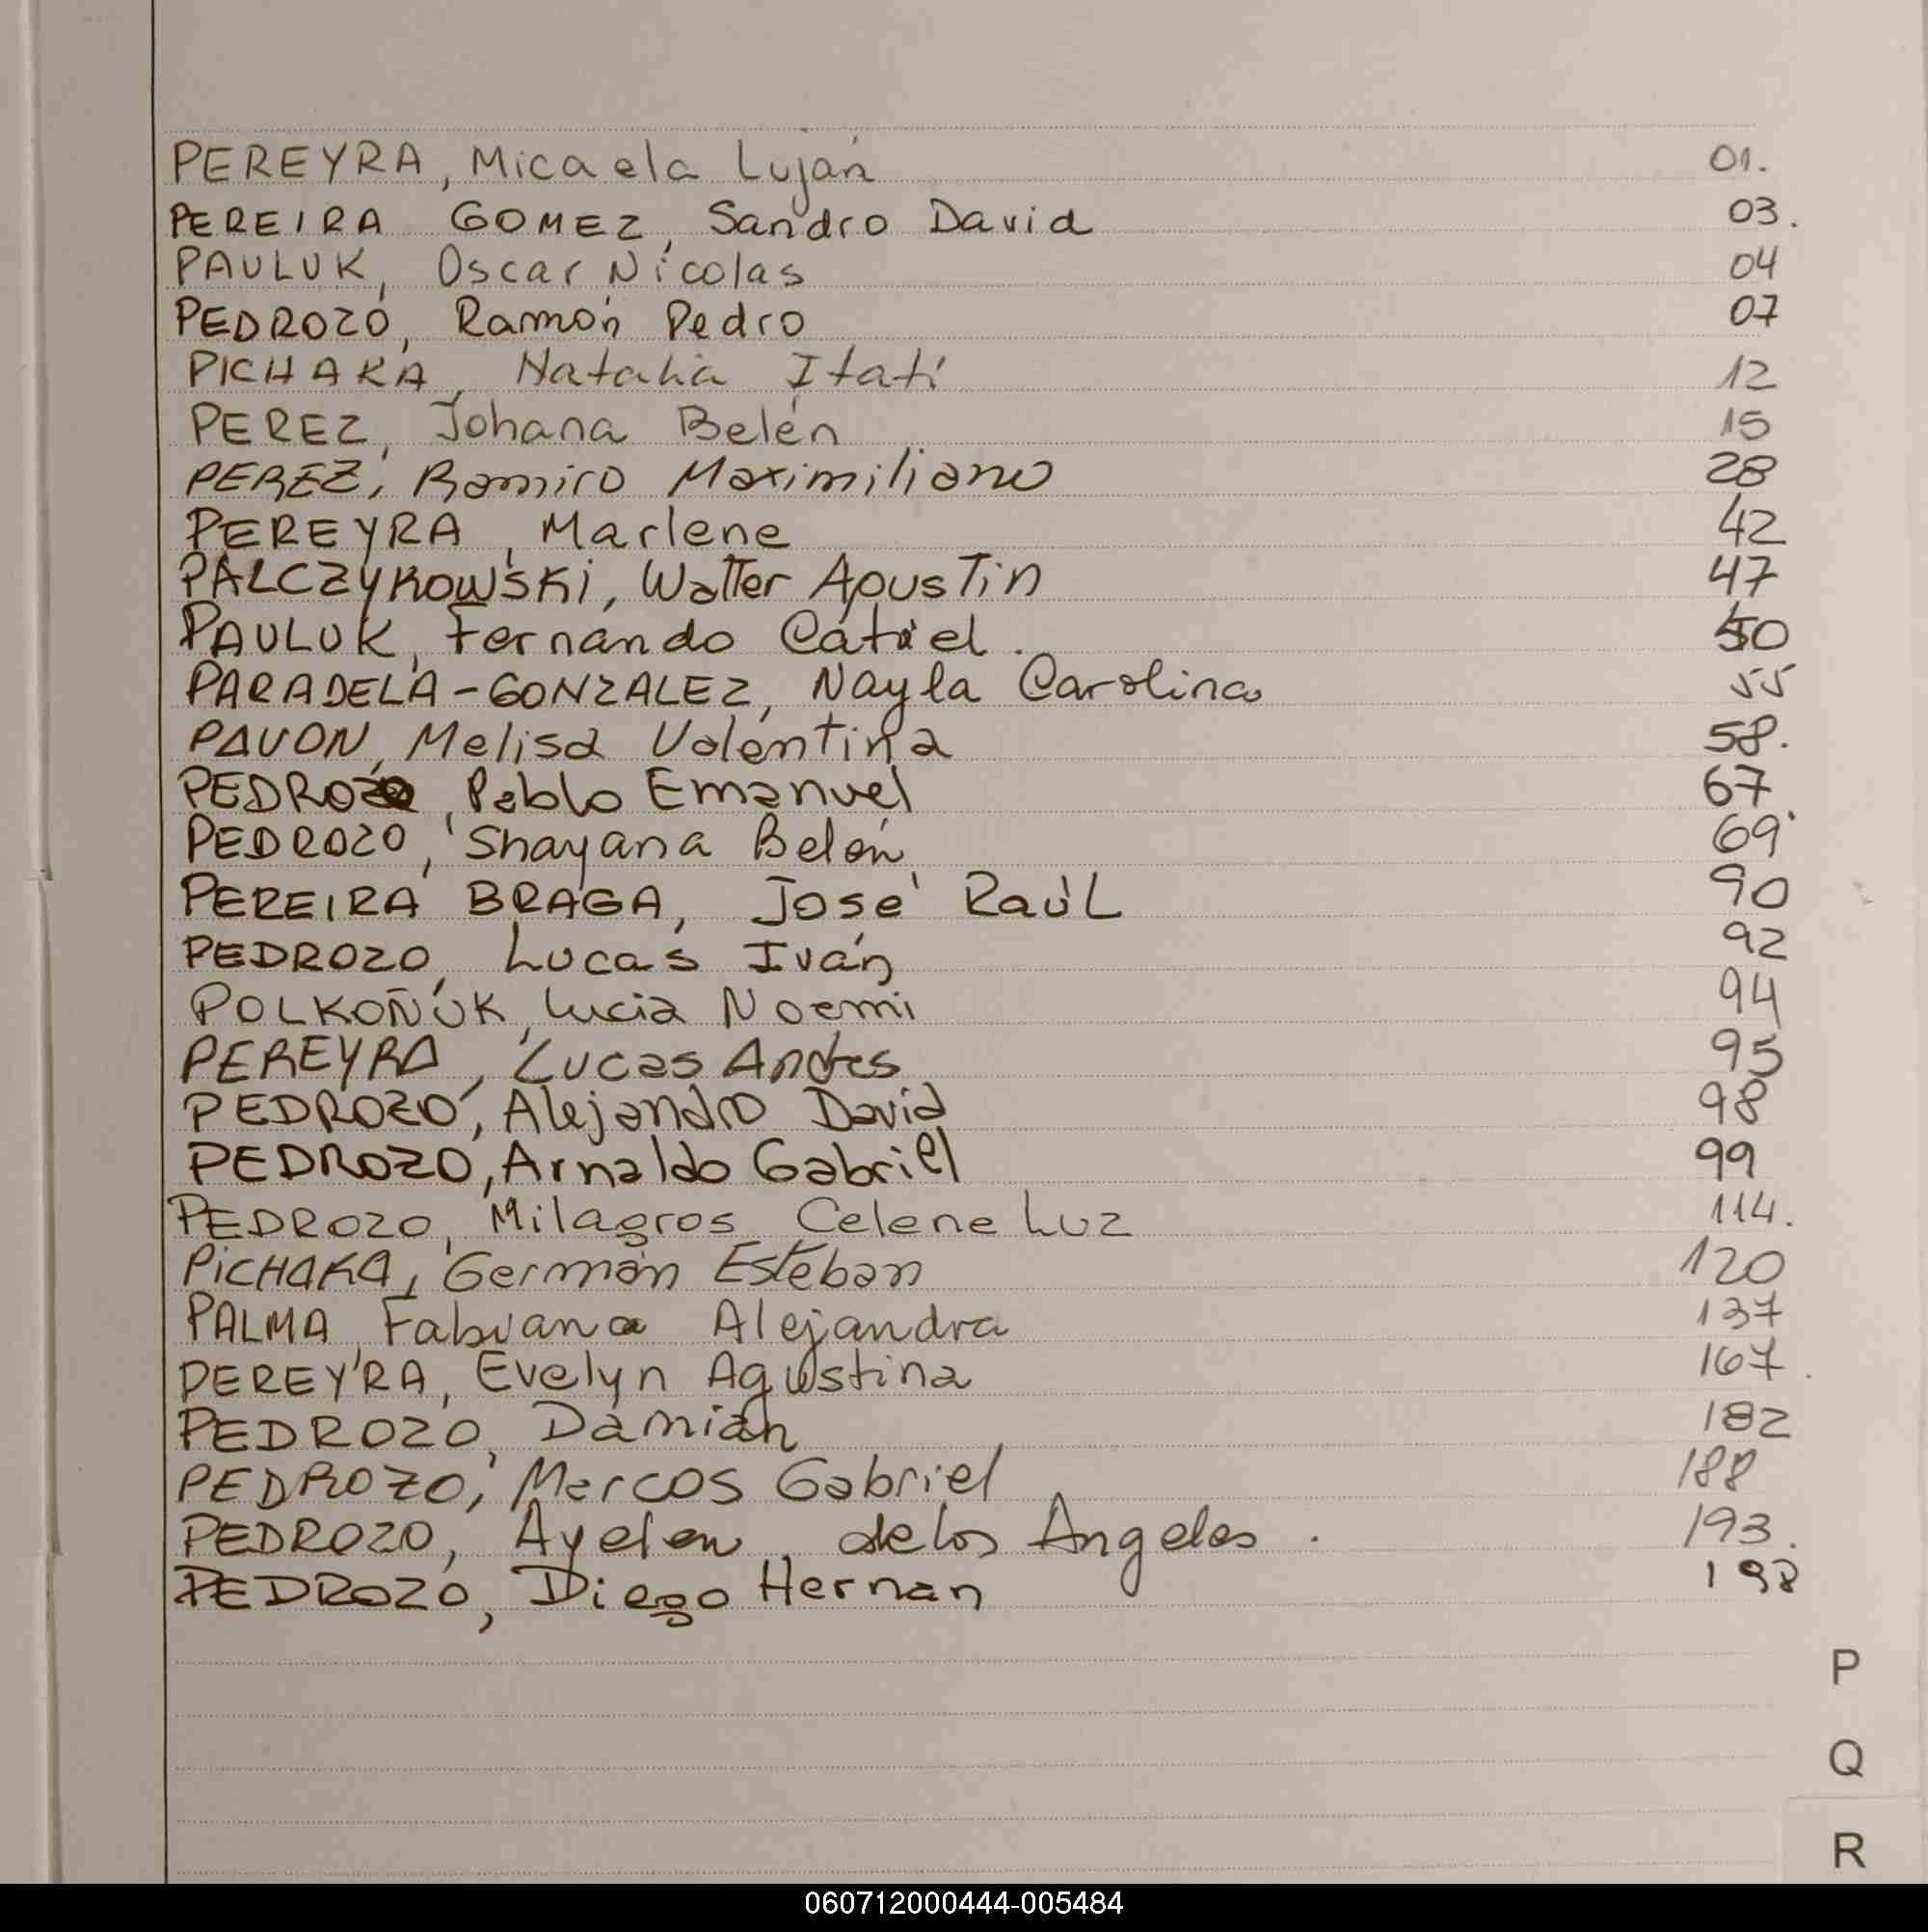 PEREYRA, Micaela Luján 01.
PEREIRA GOMEZ, Sandro David 03.
PAULUK, Oscar Nicolas 04
PEDROZO, Ramón Pedro 07
PICHAKA, Natalia Itatí 12
PEREZ, Johana Belén 15
PEREZ, Ramiro Maximiliano 28
PEREYRA, Marlene 42
PALCZYKOWSKi, Walter Agustin 47
PAULUK, Fernando Catriel. 50
PARADELA-GONZALEZ, Nayla Carolina 55
PAVON, Melisa Valentina 58.
PEDROZO, Pablo Emanuel 67
PEDROZO, Shayana Belén 69
PEREIRA BRAGA, José Raúl 90
PEDROZO, Lucas Iván 92
POLKOÑUK, Lucia Noemi 94
PEREYRA, Lucas Andres 95
PEDROZO, Alejandro David 98
PEDROZO, Arnaldo Gabriel 99
PEDROZO, Milagros Celene Luz 114.
PiCHAKA, Germán Esteban 120
PALMA, Fabiana Alejandra 137
PEREYRA, Evelyn Agustina 167.
PEDROZO, Damián 182
PEDROZO, Marcos Gabriel 188
PEDROZO, Ayelen de los Angeles. 193.
PEDROZO, Diego Hernan 198
P
Q
R
060712000444-005484